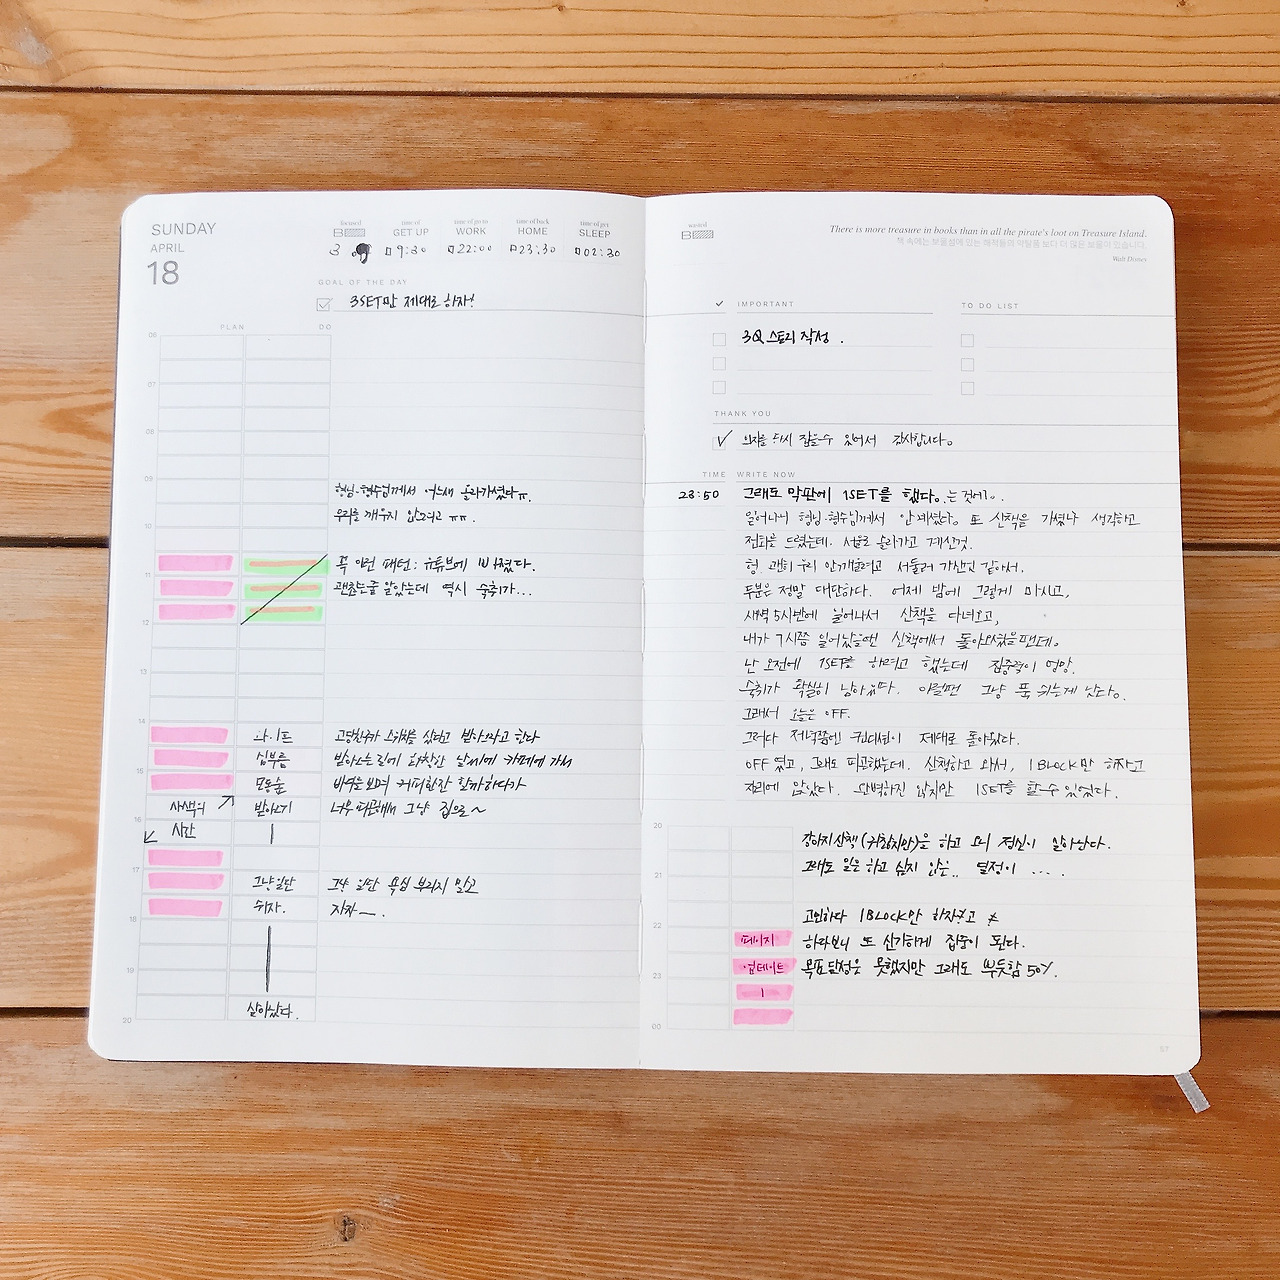 SUNDAY
APRIL
18
focused
B
3
time of
GET UP
09:30
time of go to
WORK
22:00
time of back
HOME
23:30
time of get
SLEEP
02:30
GOAL OF THE DAY
3SET만 제대로 하자!
PLAN DO
06
07
08
09
형님·형수님께서 어느새 올라가셨다ㅠ.
우리를 깨우지 않으려고 ㅠㅠ.
꼭 이런 패턴; 유튜브에
11
괜찮은줄 알았는데 역시 숙취가...
12
13
14
와이프 고당친구가 스위치를 샀다고 받아오라고 한다
심부름 받아오는길에 화창한 날씨에 카페에 가서
15
모동숲 바닥을 보며 커피한잔 할까하다가
사색의 받아오기 너무 피곤해서 그냥 집으로~
16
시간
17
그냥일단 그냥 일단 욕심 부리지 말고
쉬자. 자자—.
18
19
살아났다.
20
wasted
B
There is more treasure in books than in all the pirate's loot on Treasure Island.
책 속에는 보물섬에 있는 해적들의 약탈품 보다 더 많은 보물이 있습니다.
Walt Disney
IMPORTANT TO DO LIST
3Q 스토리 작성.
THANK YOU
의지를 다시 잡을수 있어서 감사합니다.
TIME WRITE NOW
23:50 그래도 막판에 1SET를 했다. 는 것에.
일어나니 형님·형수님께서 안계셨다. 또 산책을 가셨나 생각하고
전화를 드렸는데. 서울로 올라가고 계신것.
형. 괜히 우리 안깨울려고 서둘러 가신것 같아서.
두분은 정말 대단하다. 어제 밤에 그렇게 마시고,
새벽 5시반에 일어나서 산책을 다녀오고,
내가 7시쯤 일어났을땐 산책에서 돌아오셨을땐데.
난 오전에 1SET를 하려고 했는데 집중력이 엉망.
숙취가 확실히 남아있다. 이럴땐 그냥 푹 쉬는게 낫다.
그래서 오늘은 OFF.
그러다 저녁쯤에 컨디션이 제대로 돌아왔다.
OFF 였고, 그래도 피곤했는데. 산책하고 와서, 1BLOCK만 하자고
자리에 앉았다. 완벽하진 않지만 1SET를 할수 있었다.
20
강아지산책(귀찮지만)을 하고 오니 정신이 살아난다.
그래도 일은 하고 싶지 않은.. 열정이 ....
21
고민하다 1BLOCK만 하자! 고
22
페이지 하다보니 또 신기하게 집중이 된다.
업데이트 목표달성은 못했지만 그래도 뿌듯함 50%.
23
00
57